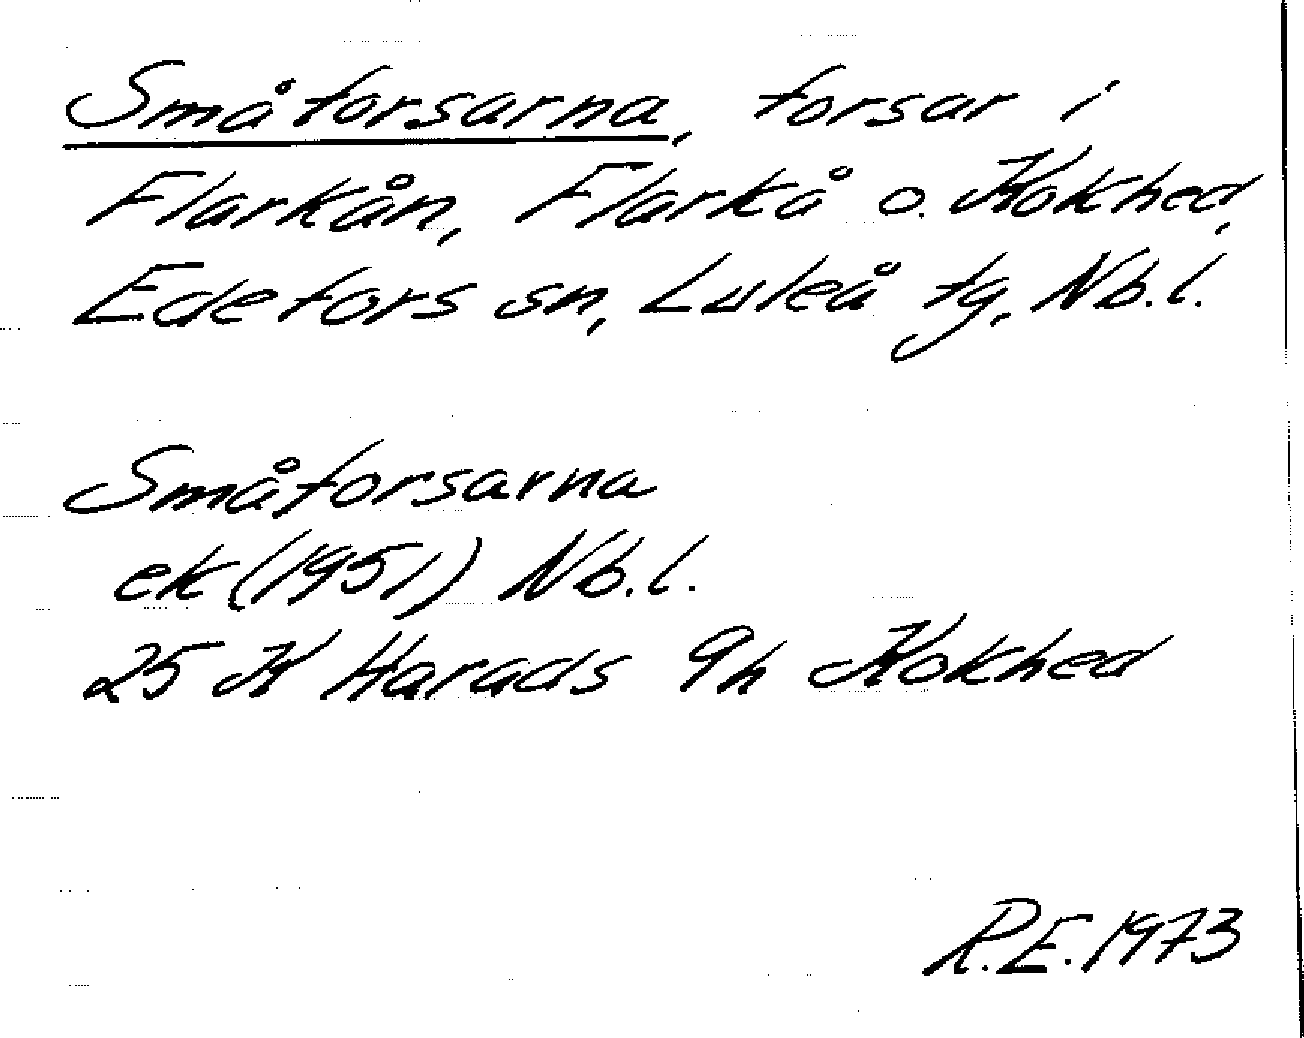 Småforsarna, forsar i
Flarkån, Flarkå o. Kokhed,
Edefors sn, Luleå tg, Nb.l.
Småforsarna
ek (1951) Nb.l.
25 K Harads 9h Kokhed
R.E. 1973